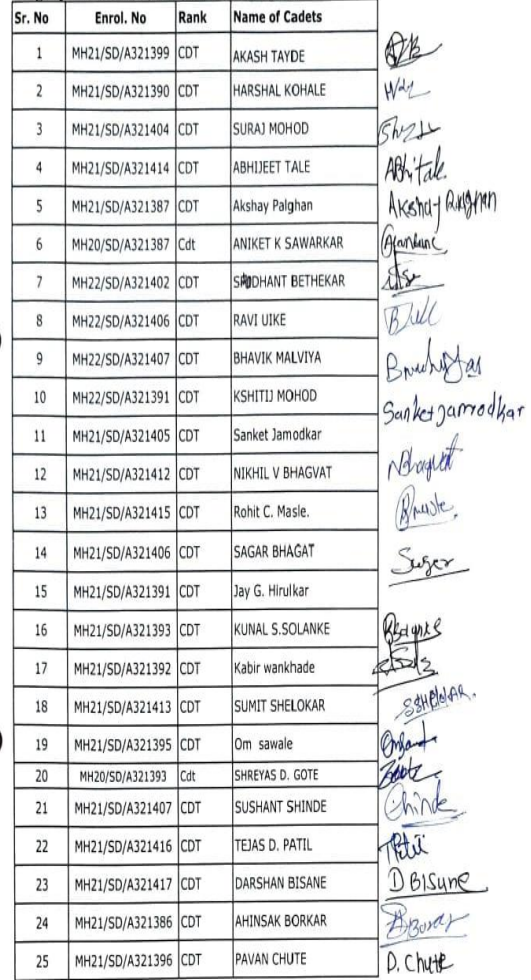 Sr. No Enrol. No Rank Name of Cadets
1 MH21/SD/A321399 CDT AKASH TAYDE
2 MH21/SD/A321390 CDT HARSHAL KOHALE
3 MH21/SD/A321404 CDT SURAJ MOHOD
4 MH21/SD/A321414 CDT ABHIJEET TALE
5 MH21/SD/A321387 CDT Akshay Palghan
6 MH20/SD/A321387 Cdt ANIKET K SAWARKAR
7 MH22/SD/A321402 CDT BETHEKAR
8 MH22/SD/A321406 CDT RAVI UIKE
9 MH22/SD/A321407 CDT BHAVIK MALVIYA
10 MH22/SD/A321391 CDT KSHITIJ MOHOD
Sanket Jamrodkar
11 MH21/SD/A321405 CDT Sanket Jamodkar
12 MH21/SD/A321412 CDT NIKHIL V BHAGVAT
13 MH21/SD/A321415 CDT Rohit C. Masle.
14 MH21/SD/A321406 CDT SAGAR BHAGAT
15 MH21/SD/A321391 CDT Jay G. Hirulkar
16 MH21/SD/A321393 CDT KUNAL S.SOLANKE
17 MH21/SD/A321392 CDT Kabir wankhade
18 MH21/SD/A321413 CDT SUMIT SHELOKAR
19 MH21/SD/A321395 CDT Om sawale
20 MH20/SD/A321393 Cdt SHREYAS D. GOTE
21 MH21/SD/A321407 CDT SUSHANT SHINDE
22 MH21/SD/A321416 CDT TEJAS D. PATIL
23 MH21/SD/A321417 CDT DARSHAN BISANE D BISune
24 MH21/SD/A321386 CDT AHINSAK BORKAR
25 MH21/SD/A321396 CDT PAVAN CHUTE D. Chute